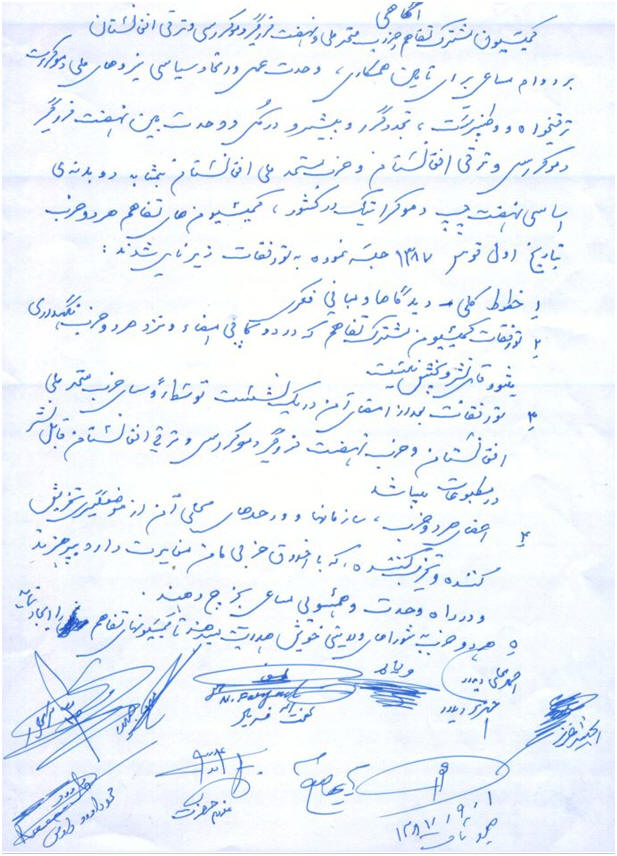 آگاهی
کمیسیون مشترک تفاهم حزب متحد ملی و نهضت فراگیر دموکراسی و ترقی افغانستان
بر دوام مساعی برای تامین همکاری، وحدت عمل و اتحاد سیاسی نیروهای ملی دموکرات
ترقیخواه و وطنپرست، تجددگرا و پیشرو در کل و وحدت بین نهضت فراگیر
دموکراسی و ترقی افغانستان و حزب متحد ملی افغانستان بمثابه دو بدنه‌ی
اساسی نهضت چپ دموکراتیک در کشور، کمیسیون های تفاهم هر دو حزب
بتاریخ اول قوس ۱۳۸۷ جلسه نموده به توافقات زیر نایل شدند:
۱ خطوط کلی دیدگاها و مبانی فکری
۲ توافقات کمیسیون مشترک تفاهم که در دو کاپی امضاء و نزد هر دو حزب نگهداری
میشود قابل نشر و پخش نیست
۳ توافقات بعد از امضای آن در یک نشست توسط رؤسای حزب متحد ملی
افغانستان و حزب نهضت فراگیر دموکراسی و ترقی افغانستان قابل نشر
در مطبوعات میباشد
۴ اعضای هر دو حزب، سازمانها و واحدهای محلی آن از موضعگیری تخریش
کننده و تخریب کننده، که با اخلاق حزبی مان مغایرت دارد بپرهیزند
و در راه وحدت و همسویی مساعی بخرچ دهند.
۵ هر دو حزب به شوراهای ولایتی خویش هدایت میدهند تا کمیسیونهای تفاهم را ایجاد نمایند